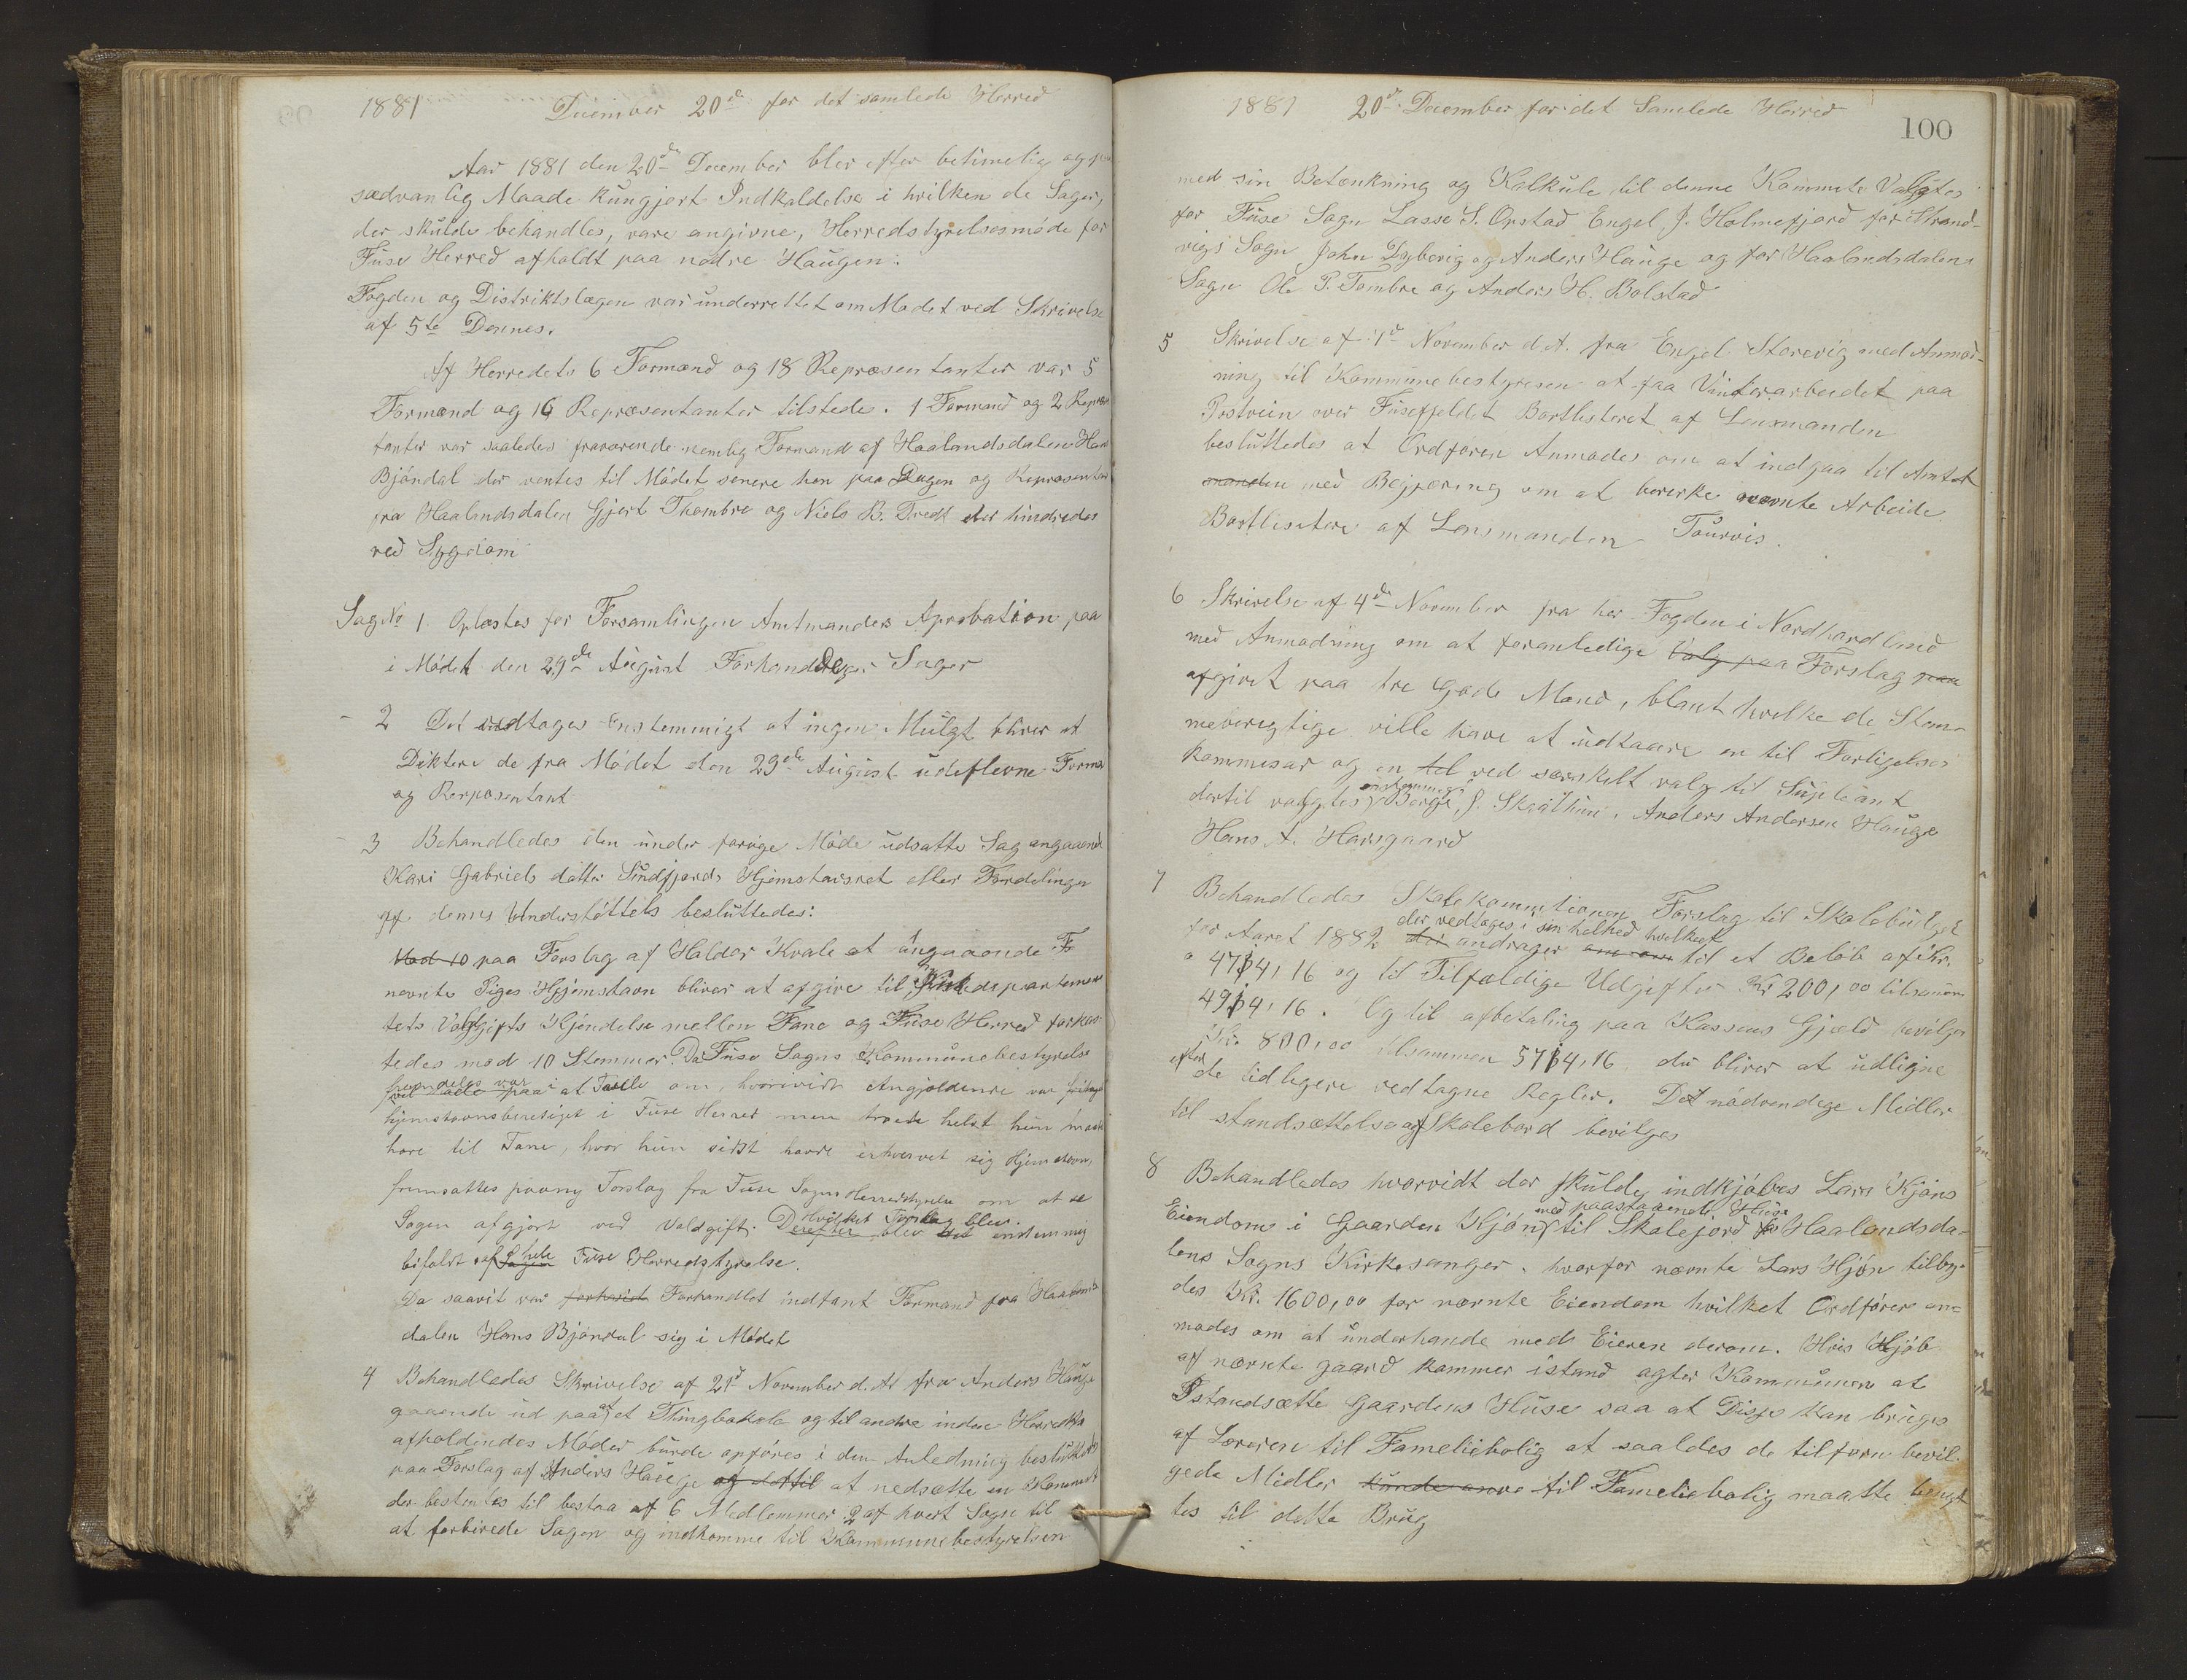 1881 December 20de for det samlede Herred
Aar 1881 den 20de December blev efter betimelig og paa
sædvanlig Maade kungjort Indkaldelse i hvilken de Sager,
der skulde behandles, vare angivne, Herredstyrelsesmøde for
Fuse Herred afholdt paa nødre Haugen.
Fogden og Distriktslægen var underrettet om Mødet ved Skrivelse
af 5te Dennes.
Af Herredets 6 Formænd og 18 Repræsentanter var 5
Formænd og 16 Repræsentanter tilstede. 1 Formand og 2 Repræsen
tanter var saaledes fraværende nemlig Formand af Haalandsdalen Hans
Bjöndal der ventes til Mödet senere hen paa Dagen og Repræsentant
fra Haalandsdalen Gjert Thombre og Niels B. Tredt der hindredes
ved Sygdom
Sag No 1 Oplæstes for Forsamlingen Amtmandens Aprobation paa
i Mödet den 29de August Forhandlede Sager
- 2 Det vedtages Enstemmigt at ingen Mulgt bliver at
Diktere de fra Mödet den 29de August udeblevne Formænd
og Repræsentant
- 3 Behandledes den under forrige Möde udsatte Sag angaaende
Kari Gabriels datter Sundfjords Hjemstavsret eller Fordelingen
af dennes Understöttels besluttedes:
Mod 10 paa Forslag af Haldor Kvale at angaaende F
nævnte Piges Hjemstavn bliver at afgive til Kirkedepartemen
tets Voldgifts Kjendelse mellem Fane og Fuse Herred forkas-
tedes mod 10 Stemmer. Da Fuse Sogns Kommunebestyrelse
fremdeles var i Tvivl om, hvorvidt Angjældende var
hjemstavnsberetiget i Fuse Herred men troede helst hun maatte
höre til Fane, hvor hun sidst havde erhvervet sig Hjemstavn,
fremsattes paany Forslag fra Fuse Sogns Herredstyrelse om at se
Sagen afgjort ved Voldgift. Hvilket Forslag blev
Derefter blev det enstemmig
bifaldt af hele Fuse Herredstyrelse.
Da saavit var forhvid Forhandlet indfant Formand fra Haalands
dalen Hans Bjöndal sig i Mödet
4 Behandledes Skrivelse af 21de November d. A. fra Anders Hauge
gaaende ud paa at et Thinglokale og til andre inden Herredet
afholdendes Møder burde opføres i den Anledning besluttedes
paa Forslag af Anders Hauge og dertil at nedsætte en Kommite
der bestemtes til bestaa af 6 Medlemmer 2 af hvert Sogn til
at forberede Sagen og indkomme til Kommunebestyrelsen
1881 20de December for det Samlede Herred
100
med sin Betænkning og Kalkule til denne Kommite Valgtes
for Fuse Sogn Lasse S. Opstad Engel J. Holmefjord for Strand-
vigs Sogn John Dyberig og Anders Hauge og for Haalandsdalens
Sogn Ole P. Tombre og Anders H. Bolstad
5 Skrivelse af 1de November d. A. fra Engel Storevig med Anmod-
ning til Kommunebestyrelsen at faa Vinterarbeidet paa
Postveien over Fusefjeldet Bortlisteret af Lensmanden
besluttedes at Ordføren Anmodes om at indgaa til Amtet
manden med Begjæring om at bevirke nævnte Arbeide
Bortlisitere af Lensmanden Tourvis.
6 Skrivelse af 4de November fra her Fogden i Nordhordland
med Anmodning om at foranledige Valg paa Forslag paa
afgivet paa tre Gode Mænd, blant hvilke de Stem-
meberegtige ville have at udkaare en til Forligelses
Kommisær og en tel ved særskilt valg til Supleant
dertil valgtes enstemmig Berge J. Skaathun, Anders Andersen Hauge
Hans A. Havsgaard
7 Behandledes Skolekommisionen Forslag til Skolebudget
der vedtages i sin helhed hvilket
for Aaret 1882 der andrager til et Beløb af Kr.
4714,16 og til Tilfældige Udgifter Kr 200,00 tilsammen
4914,16. Og til afbetaling paa Kassens Gjæld bevilges
Kr. 800,00 tilsammen 5714,16, der bliver at udligne
efter de tidligere vedtagne Regler. Det nødvendige Midler
til standsættelse af Skolebord bevilges
8 Behandledes hvorvidt der skulde indkjøbes Lars Kjøns
med paastaaende Huse
Eiendom i Gaarden Hjøn til Skolejord for Haalandsda-
lens Sogns Kirkesanger. hvorfor nævnte Lars Hjøn tilby-
des Kr. 1600,00 for nævnte Eiendom hvilket Ordfører an-
modes om at underhande med Eieren derom. Hvis Kjøb
af nævnte gaard kommer istand agter Kommunen at
Istandsætte Gaardens Huse saa at Disse kan bruges
af Læreren til Familiebolig at saaledes de tilforn bevil-
gede Midler kunde anve til Familiebolig maatte benyt
tes til dette Brug